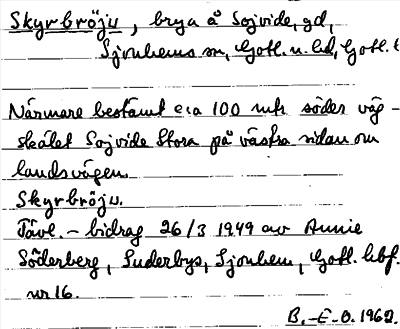 Skyrbröju, brya å Sojvide, gd,
Sjonhems sn, Gotl. n. hd, Gotl. l
Närmare bestämt c:a 100 mtr söder väg-
skälet Sojvide Stora på västra sidan om
landsvägen.
Skyrbröju.
Tävl.-bidrag 26/3 1949 av Annie
Söderberg, Suderbys, Sjonhem, Gotl. hbf.
nr 16.
B.-E. O. 1962.